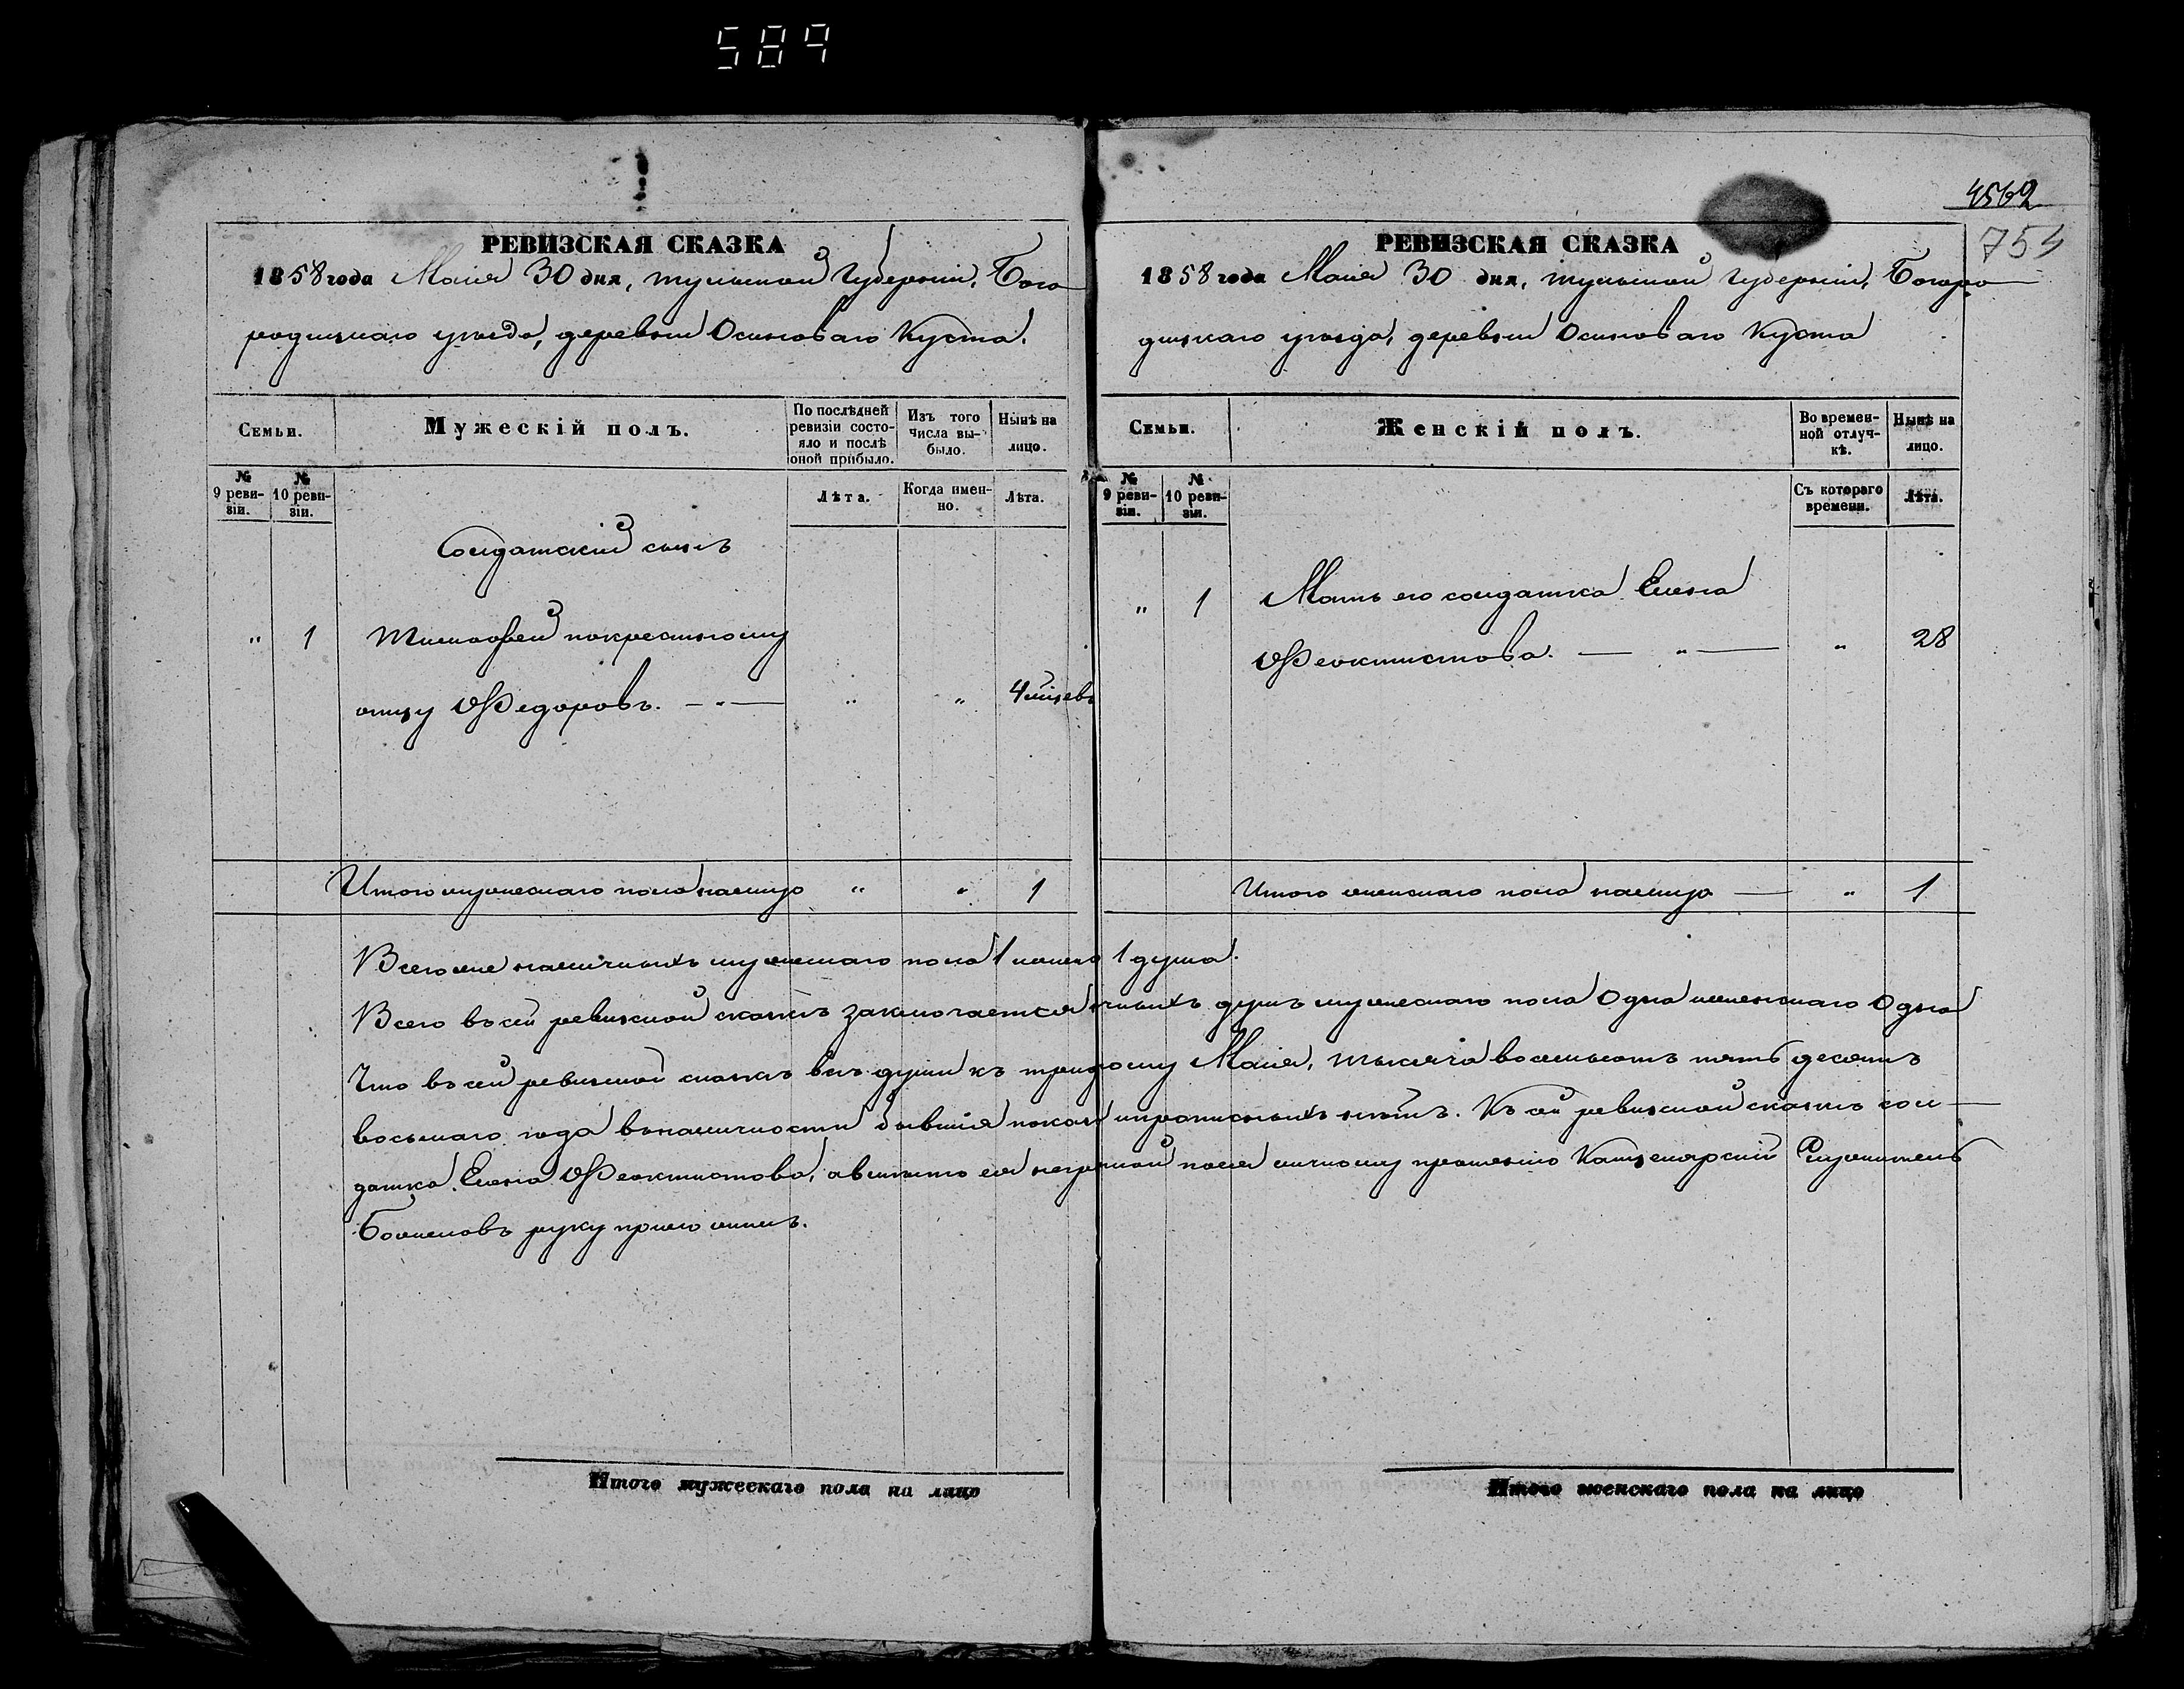 589
4562
754
РЕВИЗСКАЯ СКАЗКА
1858 года Маія 30 дня, Тульской Губерніи, Бого
родицкаго уѣзда, деревни Осиноваго Куста.
Семьи.
Мужескій полъ.
По послѣдней ревизіи состояло и послѣ оной прибыло.
Изъ того числа выбыло.
Нынѣ на лицо.
№ 9 ревизіи.
№ 10 ревизіи.
Лѣта.
Когда именно.
Лѣта.
Солдатскій сынъ
" 1 Тимофей по крестному
отцу Федоровъ. — " — " " 4 мѣцевъ
Итого мужескаго пола налицо " " 1
РЕВИЗСКАЯ СКАЗКА
1858 года Маія 30 дня, Тульской Губерніи, Богоро
дицкаго уѣзда, деревни Осиноваго Куста
Семьи.
Женскій полъ.
Во временной отлучкѣ.
Нынѣ на лицо.
№ 9 ревизіи.
№ 10 ревизіи.
Съ котораго времени.
Лѣта.
" 1 Мать его солдатка Елена
Феоктистова. — " — " 28
Итого женскаго пола налицо — " 1
Всего же наличныхъ мужескаго пола 1 женска 1 душа.
Всего въ сей ревизской сказкѣ заключается
душъ мужескаго пола Одна и женскаго Одна
Что въ сей ревизской сказкѣ всѣ души къ
Маія, тысяча восемьсотъ пятьдесятъ
восьмаго года въ наличности бывшія показ
и прописныхъ нѣтъ. Къ сей ревизской сказкѣ сол—
датка Елена Феоктистова, а вмѣсто ея неграмотной
по ея личному прошенію Канцелярскій Служитель
руку приложилъ.
Итого мужескаго пола на лицо
Итого женскаго пола на лицо